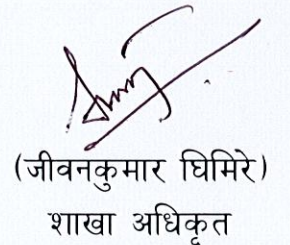 (जीवनकुमार घिमिरे)
शाखा अधिकृत